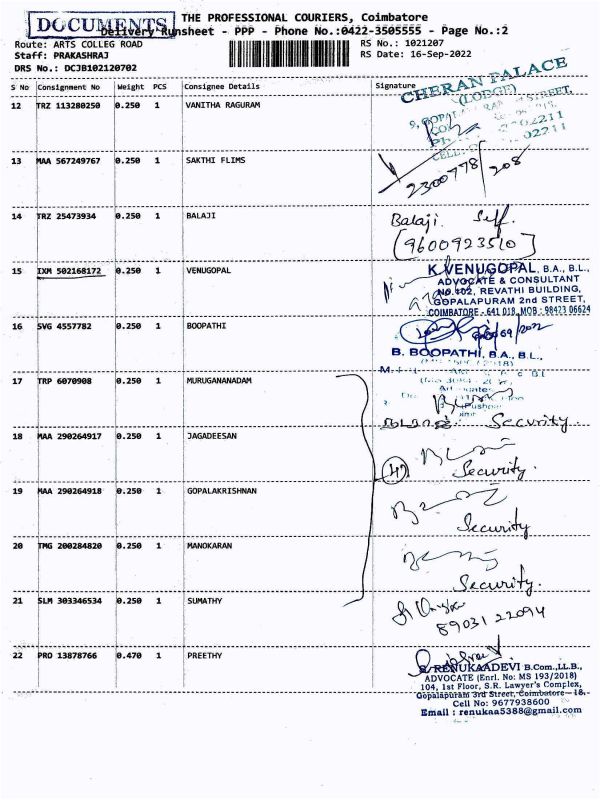 DOCUMENTS
THE PROFESSIONAL COURIERS, Coimbatore
Delivery Runsheet - PPP - Phone No.:0422-3505555 - Page No.:2
Route: ARTS COLLEG ROAD
RS No.: 1021207
Staff: PRAKASHRAJ
RS Date: 16-Sep-2022
DRS No.: DCJB102120702
S No Consignment No Weight PCS Consignee Details Signature
CHERAN PALACE
(LODGE)
12 TRZ 113280250 0.250 1 VANITHA RAGURAM
STREET,
02211
CELL:
13 MAA 567249767 0.250 1 SAKTHI FLIMS
2300778/208
14 TRZ 25473934 0.250 1 BALAJI
Balaji. Self.
(9600923510)
15 IXM 502168172 0.250 1 VENUGOPAL
K.VENUGOPAL, B.A., B.L.,
ADVOCATE & CONSULTANT
No.102, REVATHI BUILDING,
GOPALAPURAM 2nd STREET,
COIMBATORE - 641 018. MOB : 98423 06624
16 SVG 4557782 0.250 1 BOOPATHI
B. BOOPATHI, B.A., B.L.,
17 TRP 6070908 0.250 1 MURUGANANADAM
Security
18 MAA 290264917 0.250 1 JAGADEESAN
Security.
19 MAA 290264918 0.250 1 GOPALAKRISHNAN
Security
20 TMG 200284820 0.250 1 MANOKARAN
Security.
21 SLM 303346534 0.250 1 SUMATHY
89031 22094
22 PRO 13878766 0.470 1 PREETHY
S. RENUKAADEVI B.Com.,LL.B.,
ADVOCATE (Enrl. No: MS 193/2018)
104, 1st Floor, S.R. Lawyer's Complex,
Gopalapuram 3rd Street, Coimbatore-18.
Cell No: 9677938600
Email : renukaa5388@gmail.com